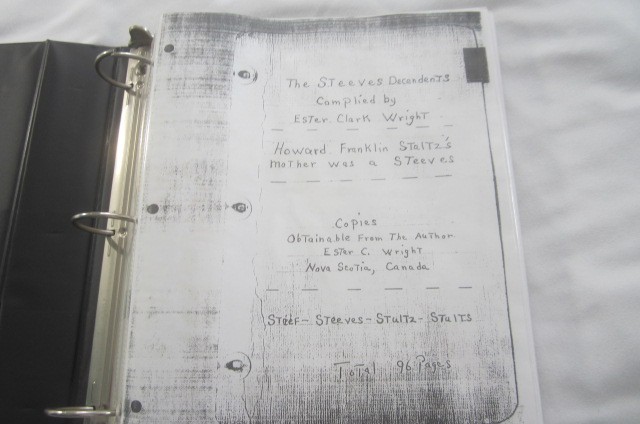 The STeeves Decendents
Complied by
Ester Clark Wright
Howard Franklin STulTz's
moTher was a STeeves
Copies
ObTainable From The AuThor
EsTer C. WrighT
Nova ScoTia, Canada
STeeF - STeeves - STulTz - STulTs
ToTal 96 Pages